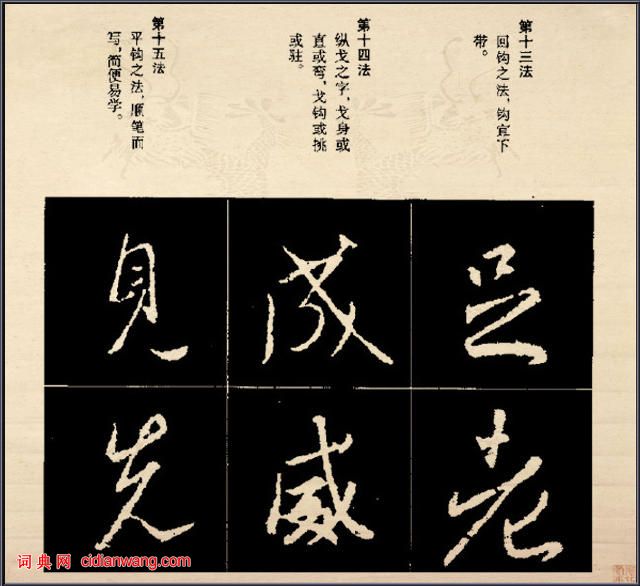 第十三法
回钩之法，钩宜下
带。
第十四法
纵戈之字，戈身或
直或弯，戈钩或挑
或驻。
第十五法
平钩之法，顺笔而
写，简便易学。
足
老
成
威
见
先
词典网 cidianwang.com